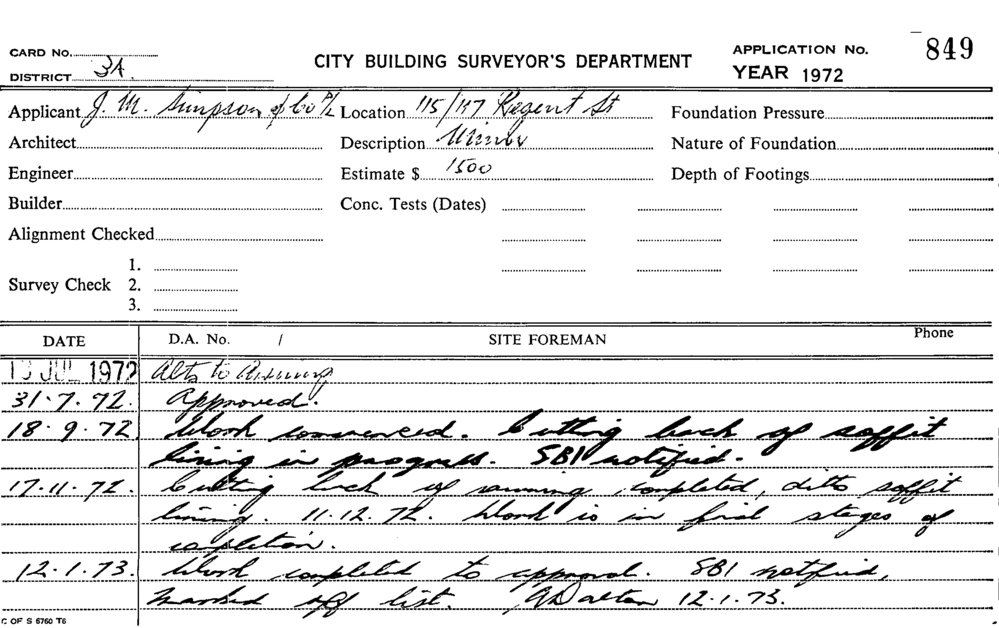 CARD No.
DISTRICT 3A
CITY BUILDING SURVEYOR'S DEPARTMENT
APPLICATION No. 849
YEAR 1972
Applicant J. M. Simpson & Co P/L Location 115/117 Regent St Foundation Pressure
Architect Description Minor Nature of Foundation
Engineer Estimate $ 1500 Depth of Footings
Builder Conc. Tests (Dates)
Alignment Checked
Survey Check 1.
2.
3.
DATE D.A. No. / SITE FOREMAN Phone
JUL 1972 Alts to Awning
31.7.72. Approved.
18.9.72 Work commenced. Cutting back of soffit
lining in progress. SBI notified.
17.11.72. Cutting back of awning completed, ditto soffit
lining. 11.12.72. Work is in final stages of
completion.
12.1.73. Work completed to approval. SBI notified,
Marked off list. Dalton 12.1.73.
C OF S 6760 T6